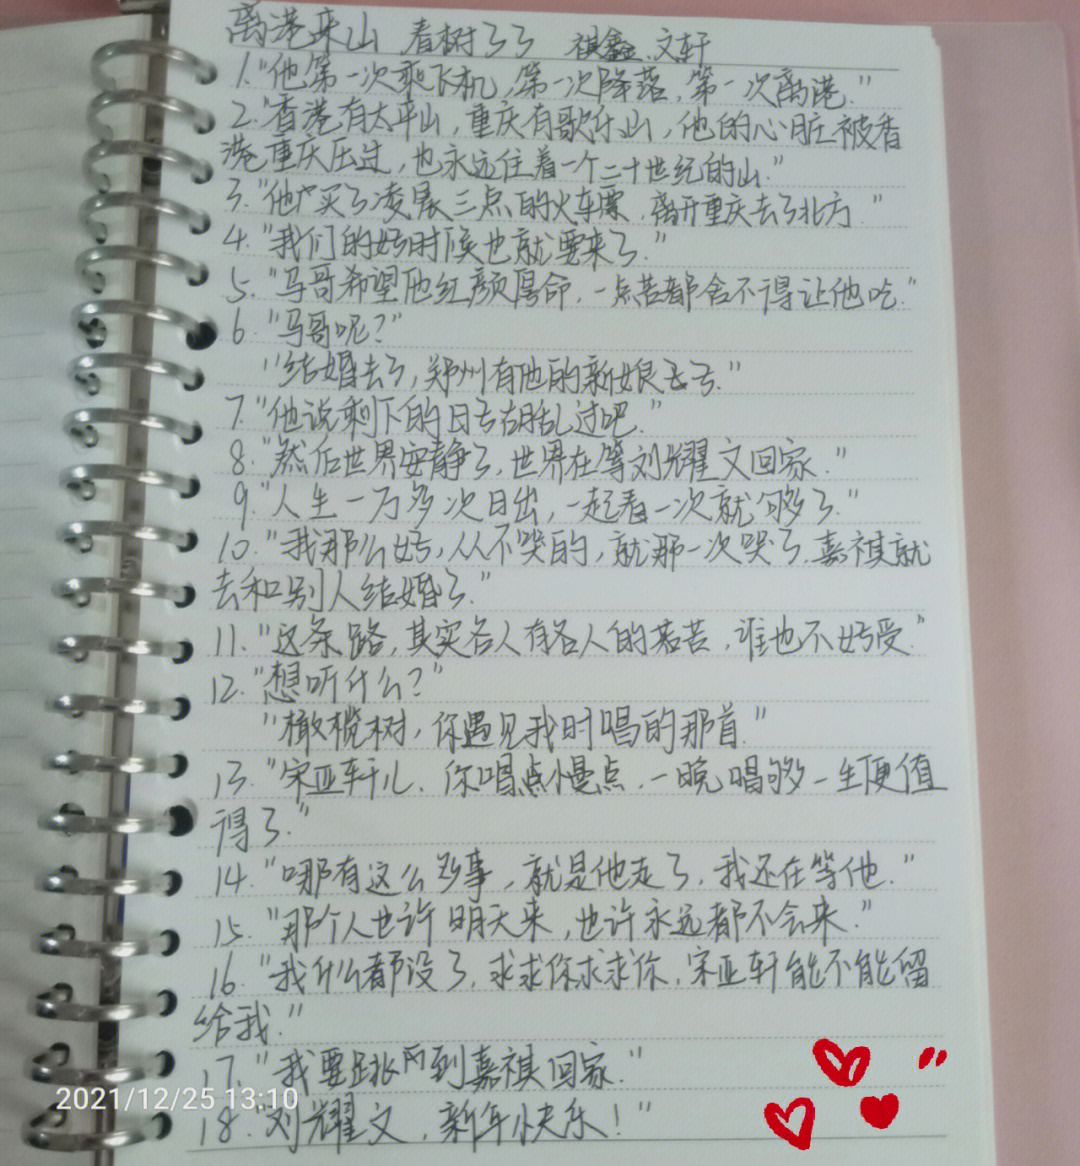 离港来山 看树了了 祺鑫、文轩
1."他第一次乘飞机,第一次降落,第一次离港."
2."香港有太平山,重庆有歌乐山,他的心脏被香
港重庆压过,也永远住着一个二十世纪的山."
3."他买了凌晨三点的火车票,离开重庆去了北方."
4."我们的好时候也就要来了."
5."马哥希望他红颜厚命,一点苦都舍不得让他吃."
6."马哥呢?"
"结婚去了,郑州有他的新娘子."
7."他说剩下的日子胡乱过吧."
8."然后世界安静了,世界在等刘耀文回家."
9."人生一万多次日出,一起看一次就够了."
10."我那么好,从不哭的,就那一次哭了,嘉祺就
去和别人结婚了."
11."这条路,其实各人有各人的苦,谁也不好受"
12."想听什么?"
"橄榄树,你遇见我时唱的那首."
13."宋亚轩儿,你唱点慢点,一晚唱够一生便值
得了."
14."哪有这么多事,就是他走了,我还在等他."
15."那个人也许明天来,也许永远都不会来."
16."我什么都没了,求求你求求你,宋亚轩能不能留
给我."
17."我要跳两到嘉祺回家."
18."刘耀文,新年快乐!"
2021/12/25 13:10